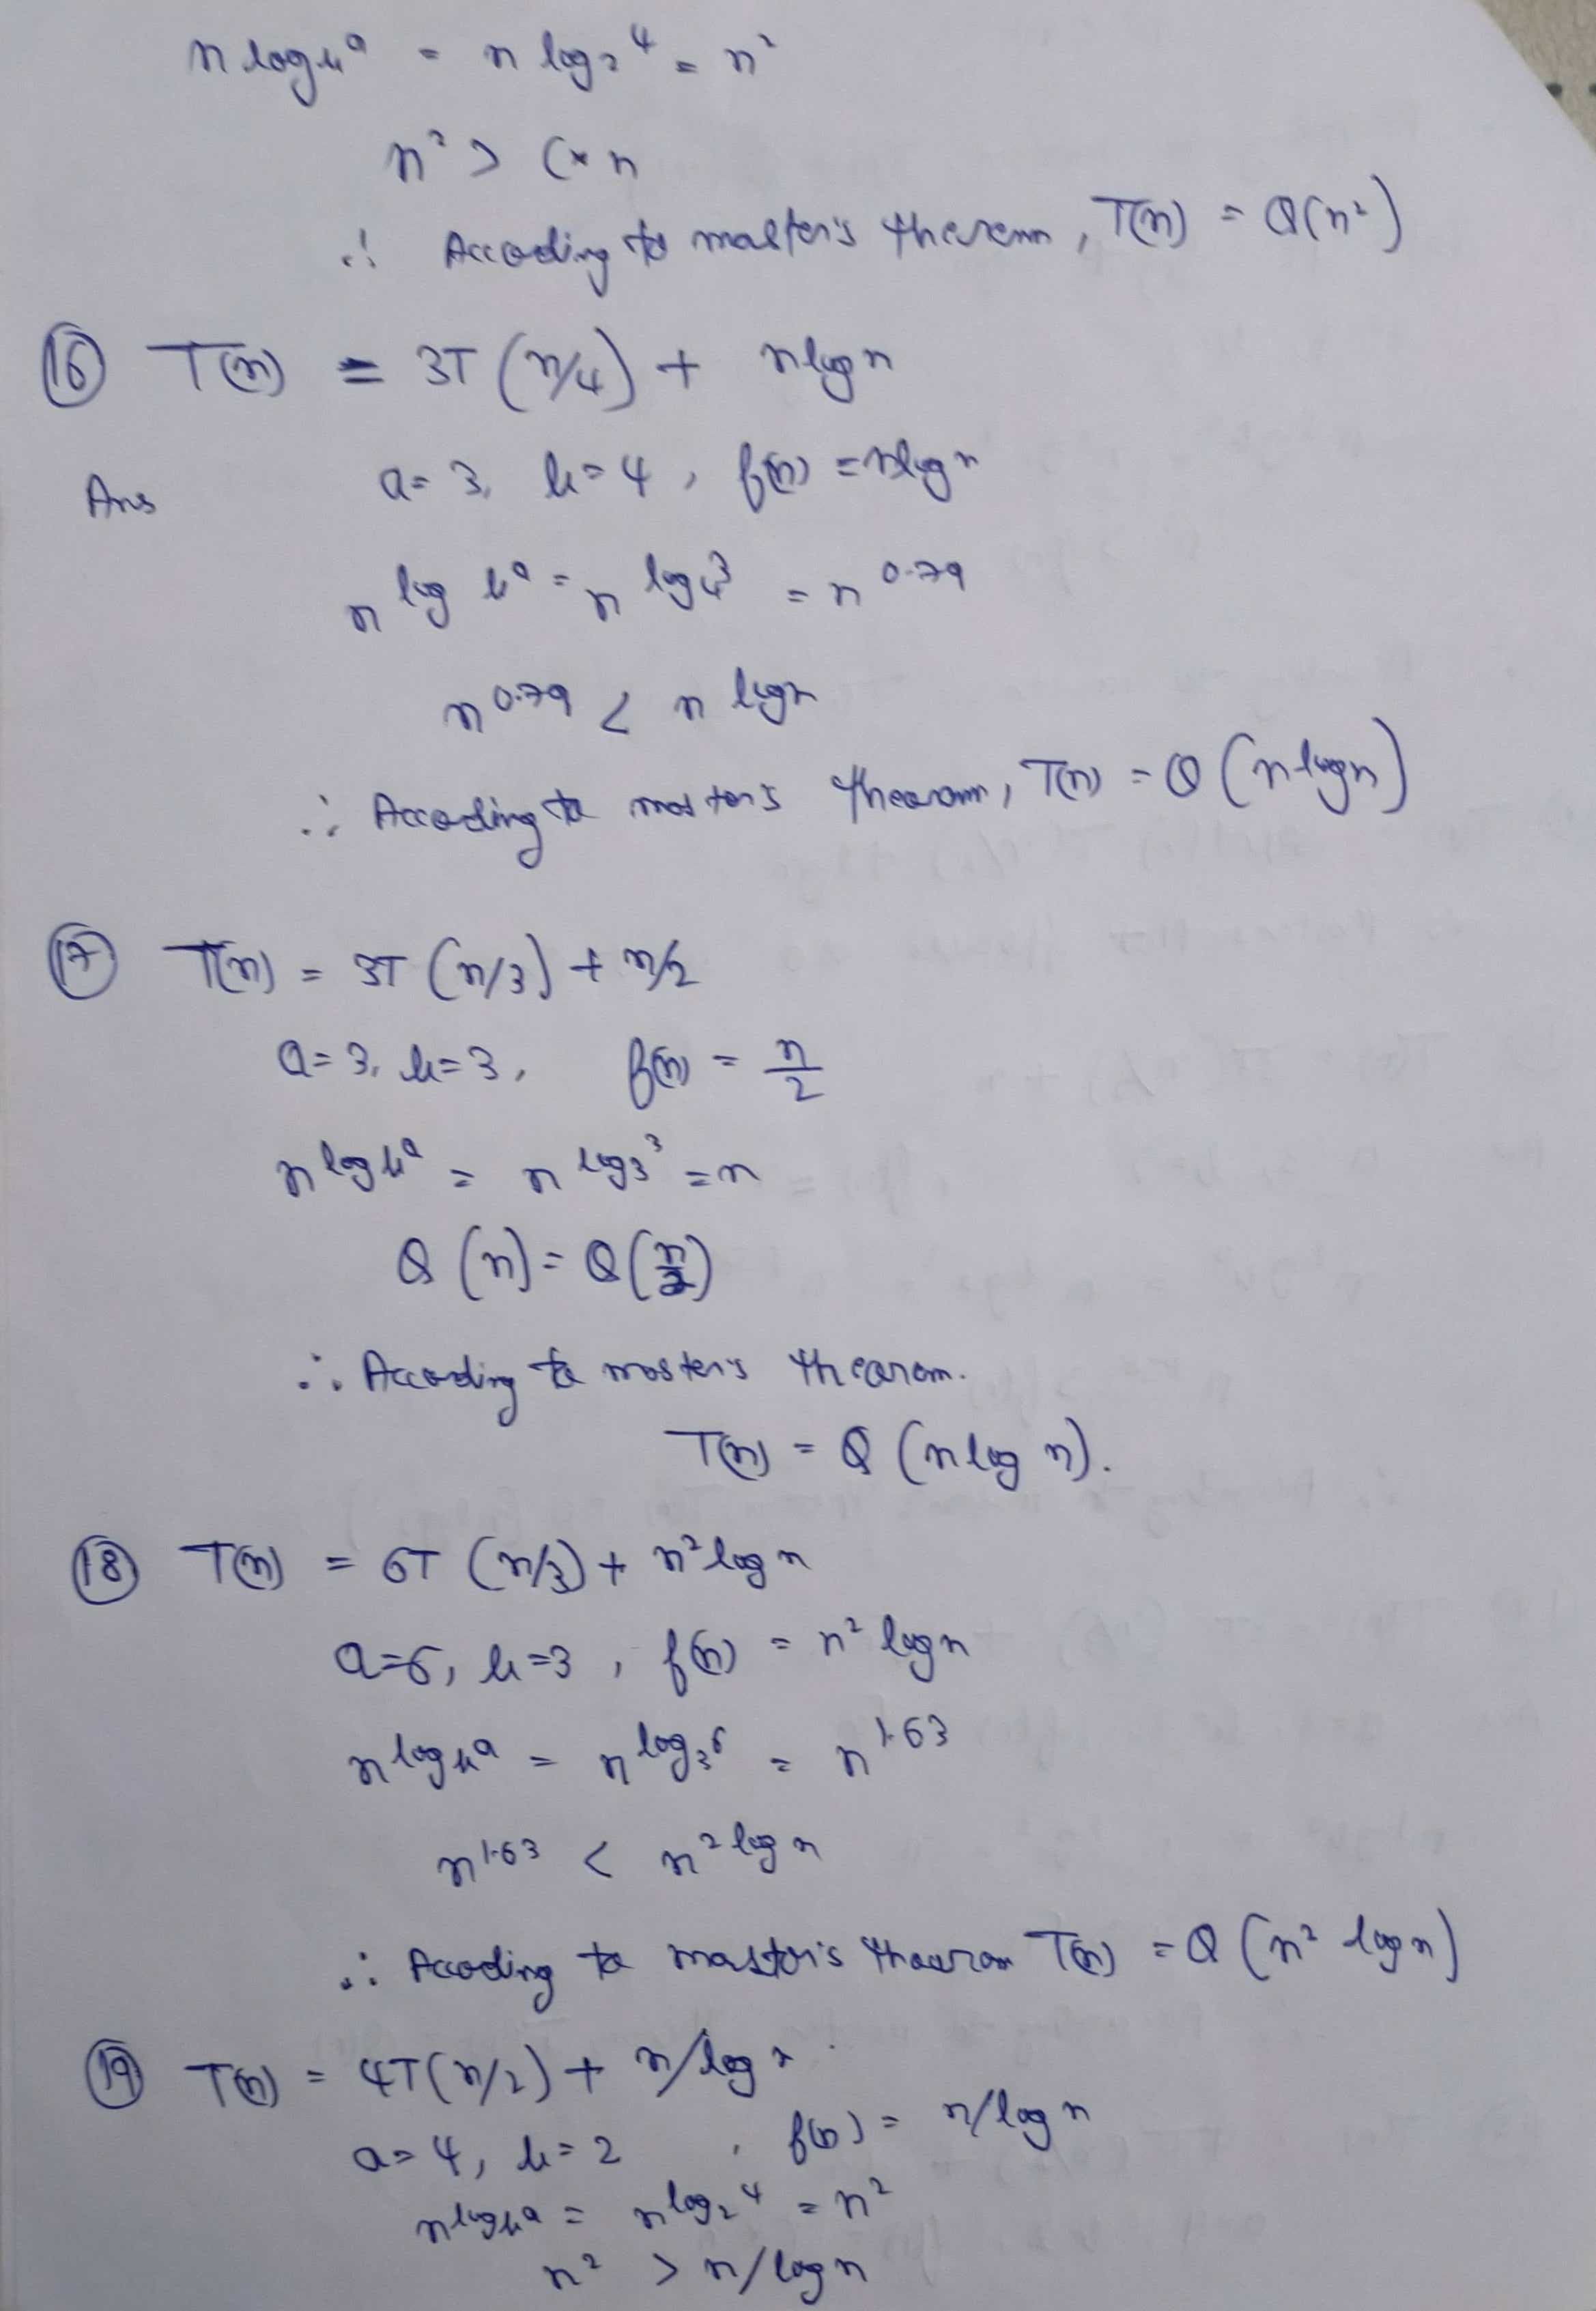 n log_b a = n log_2 4 = n²
n² > C×n
∴ According to master's therem, T(n) = θ(n²)
⑯ T(n) = 3T (n/4) + n log n
Ans a = 3, b = 4, f(n) = n log n
n^log_b a = n^log_4 3 = n^0.79
n^0.79 < n log n
∴ According to master's thearom, T(n) = θ (n log n)
⑰ T(n) = 3T (n/3) + n/2
a = 3, b = 3, f(n) = n/2
n^log_b a = n^log_3 3 = n
θ (n) = θ (n/2)
∴ According to master's thearom.
T(n) = θ (n log n).
⑱ T(n) = 6T (n/3) + n² log n
a = 6, b = 3, f(n) = n² log n
n^log_b a = n^log_3 6 = n^1.63
n^1.63 < n² log n
∴ Accoding to master's thearom T(n) = θ (n² log n)
⑲ T(n) = 4T(n/2) + n/log n
a = 4, b = 2, f(n) = n/log n
n^log_b a = n^log_2 4 = n²
n² > n/log n